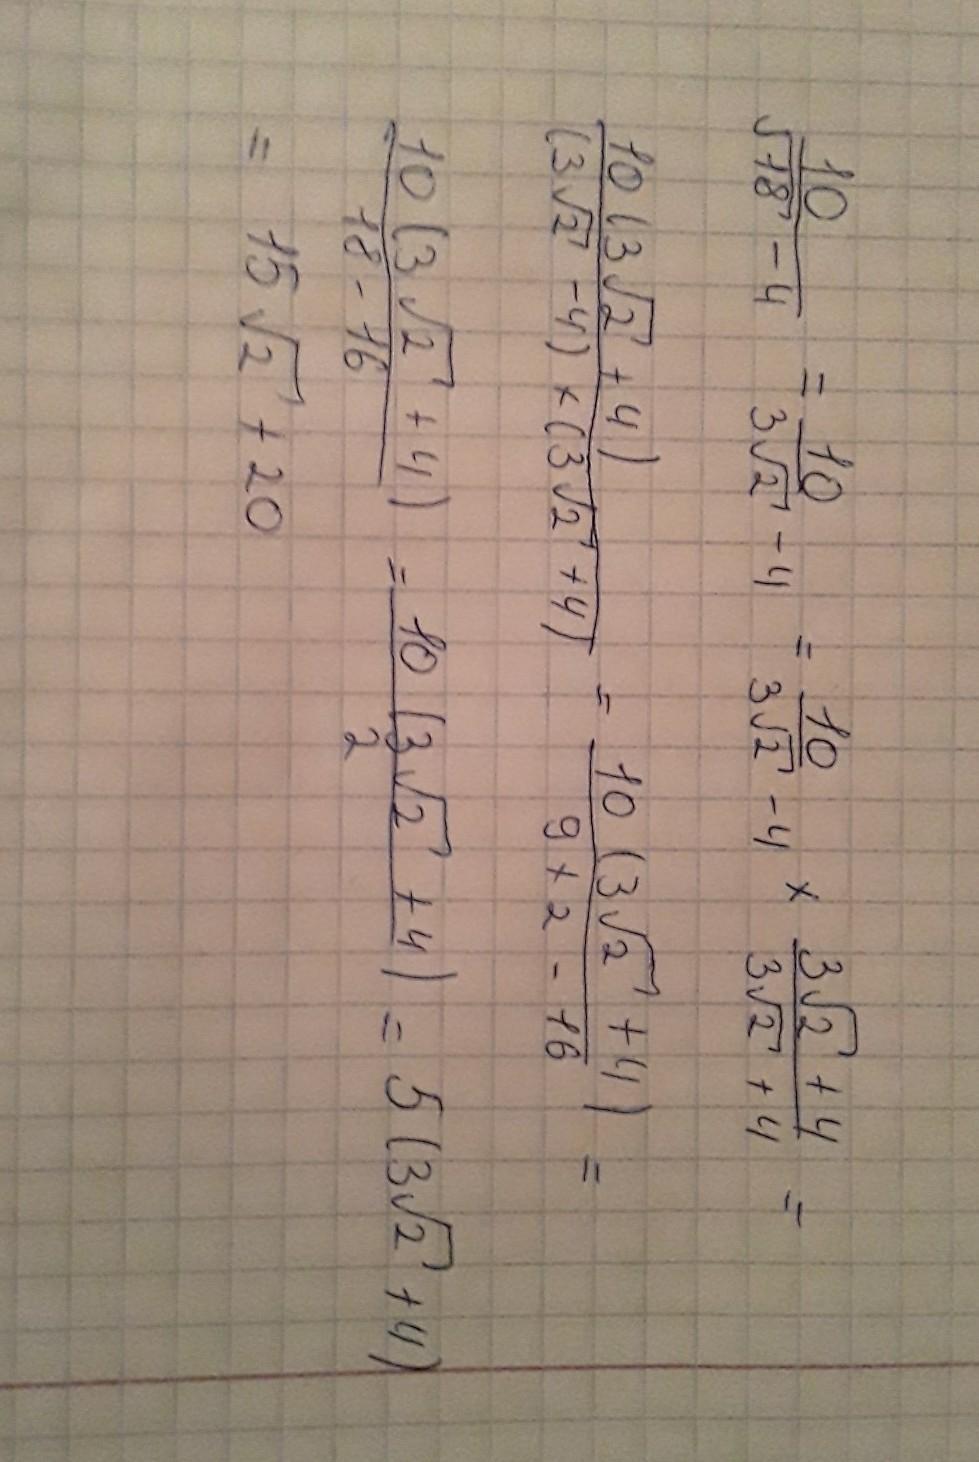 10/(√18 - 4) = 10/(3√2 - 4) = 10/(3√2 - 4) × (3√2 + 4)/(3√2 + 4) =
10(3√2 + 4)/((3√2 - 4) × (3√2 + 4)) = 10(3√2 + 4)/(9 × 2 - 16) =
= 10(3√2 + 4)/(18 - 16) = 10(3√2 + 4)/2 = 5(3√2 + 4)
= 15√2 + 20